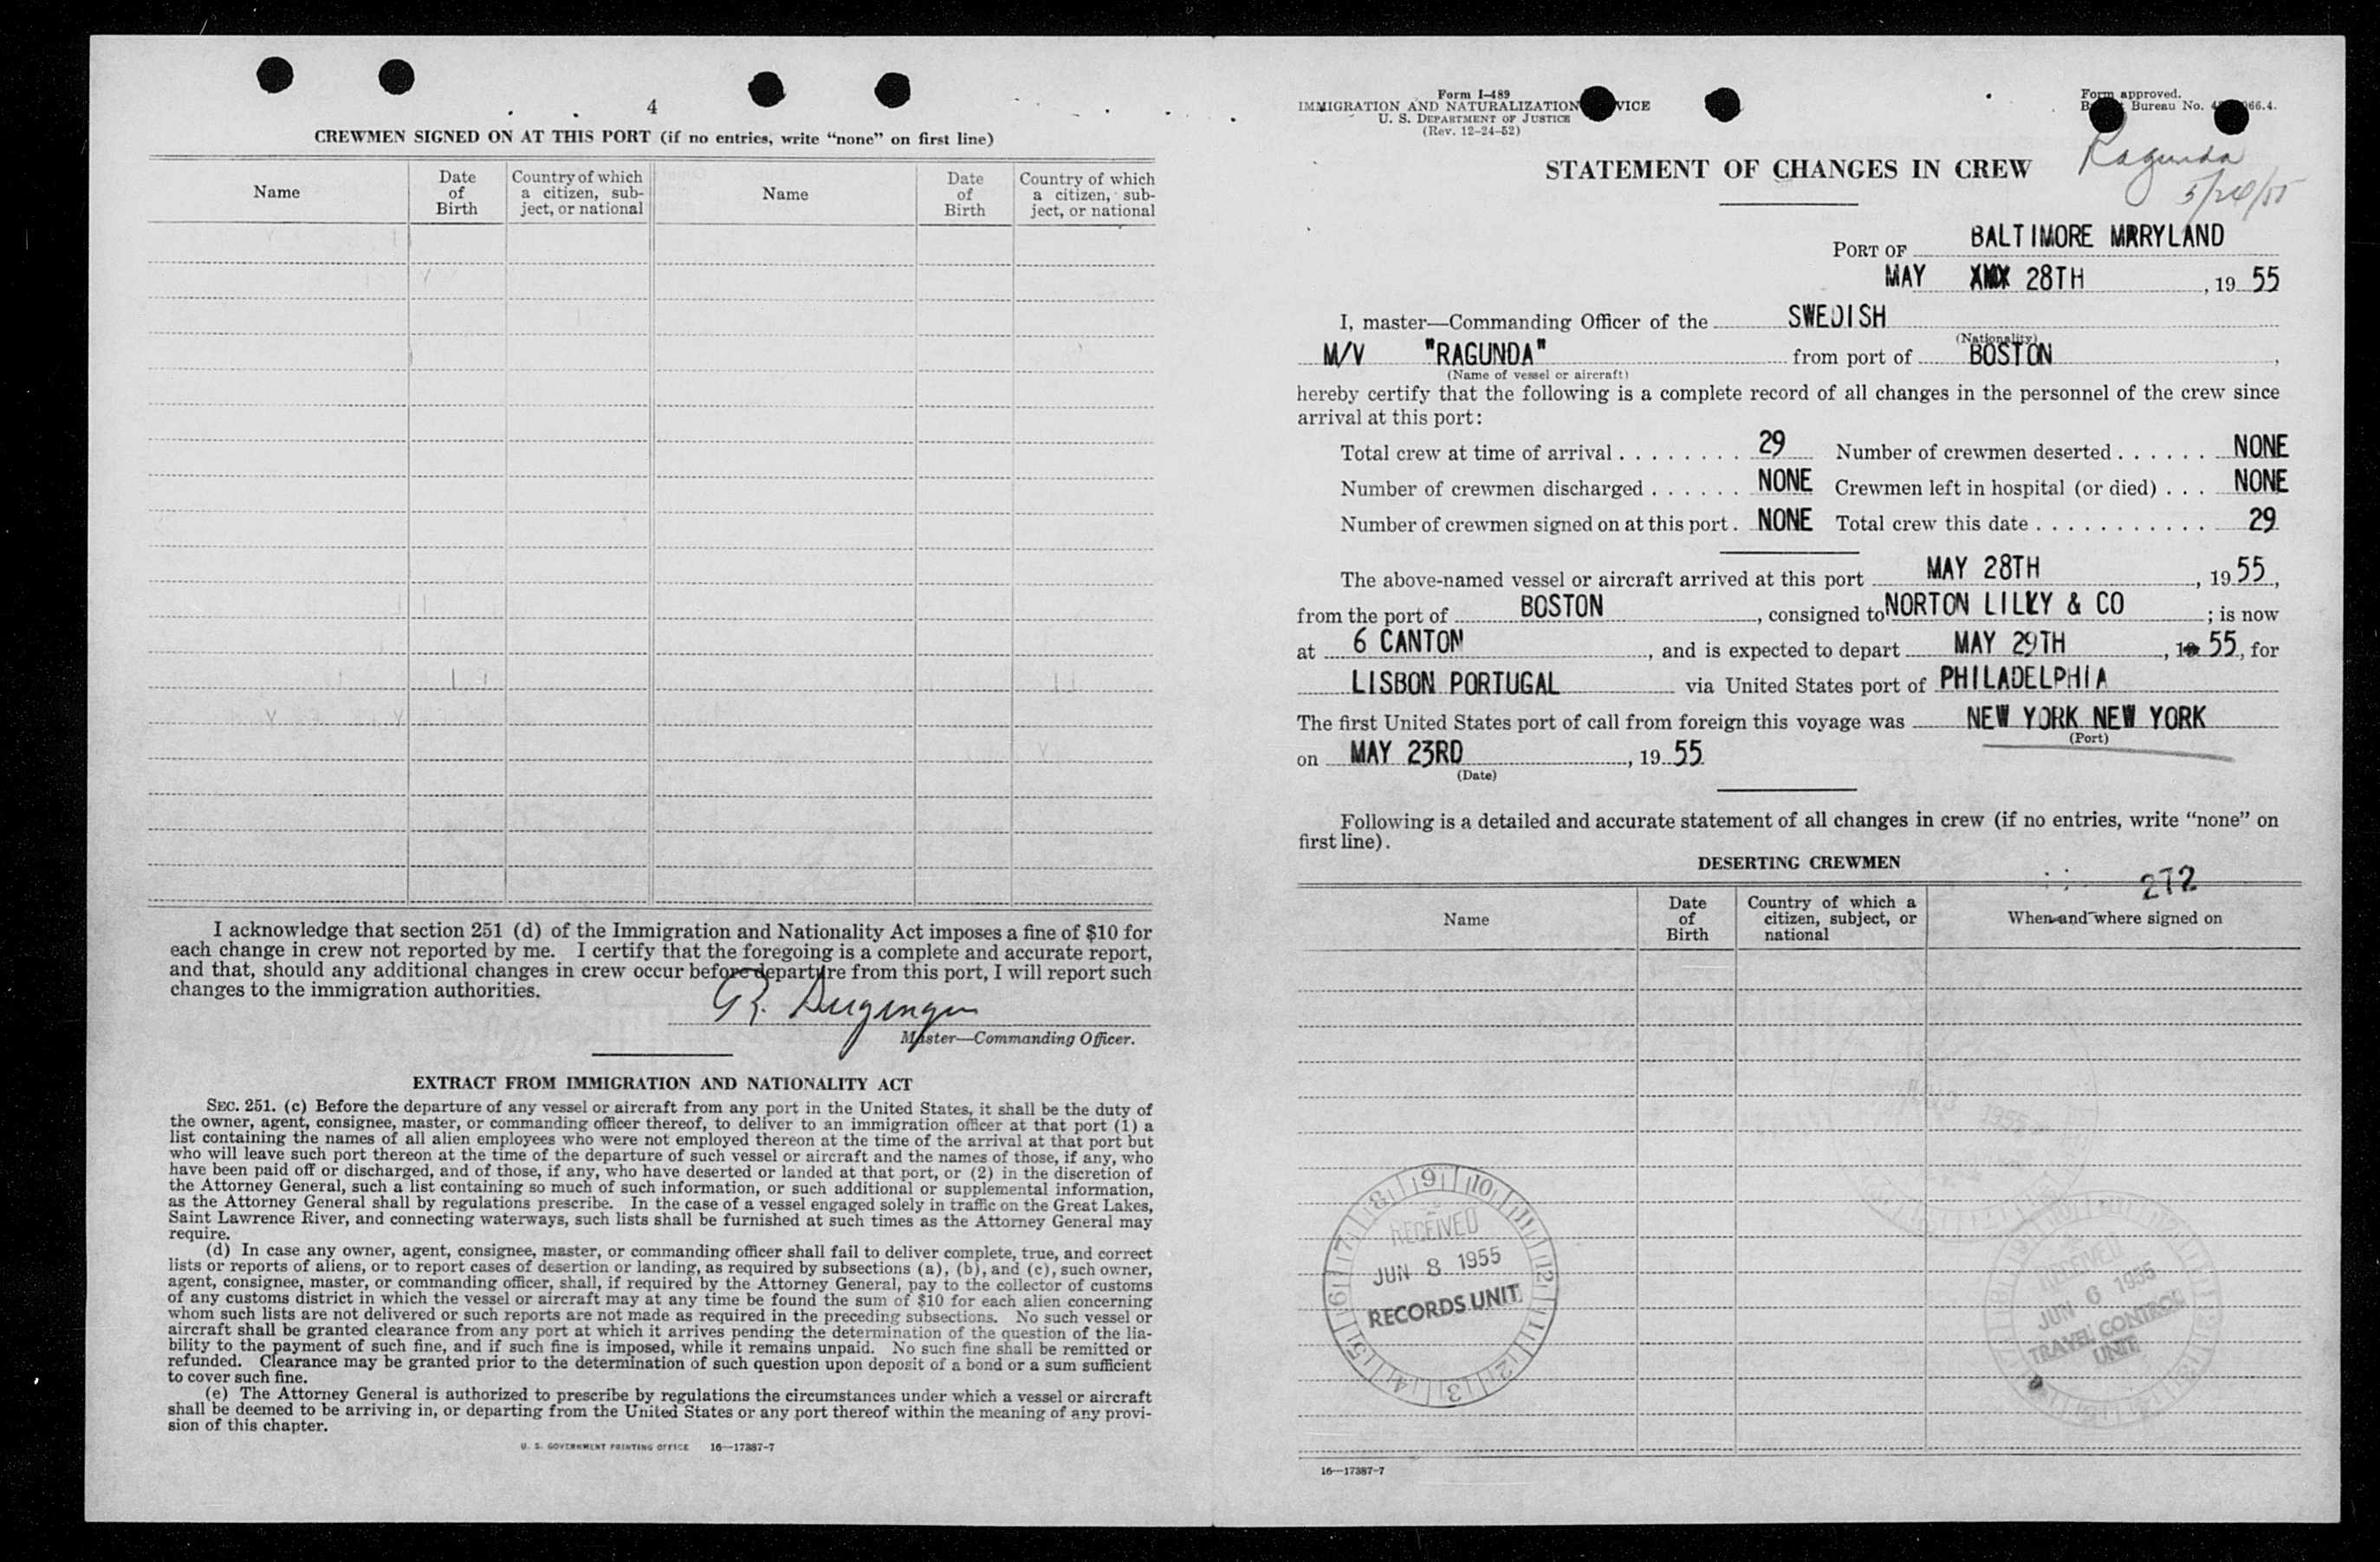 4
CREWMEN SIGNED ON AT THIS PORT (if no entries, write “none” on first line)
Name
Date of Birth
Country of which a citizen, sub-
ject, or national
Name
Date of Birth
Country of which a citizen, sub-
ject, or national
I acknowledge that section 251 (d) of the Immigration and Nationality Act imposes a fine of $10 for
each change in crew not reported by me. I certify that the foregoing is a complete and accurate report,
and that, should any additional changes in crew occur before departure from this port, I will report such
changes to the immigration authorities.
Master—Commanding Officer.
EXTRACT FROM IMMIGRATION AND NATIONALITY ACT
SEC. 251. (c) Before the departure of any vessel or aircraft from any port in the United States, it shall be the duty of
the owner, agent, consignee, master, or commanding officer thereof, to deliver to an immigration officer at that port (1) a
list containing the names of all alien employees who were not employed thereon at the time of the arrival at that port but
who will leave such port thereon at the time of the departure of such vessel or aircraft and the names of those, if any, who
have been paid off or discharged, and of those, if any, who have deserted or landed at that port, or (2) in the discretion of
the Attorney General, such a list containing so much of such information, or such additional or supplemental information,
as the Attorney General shall by regulations prescribe. In the case of a vessel engaged solely in traffic on the Great Lakes,
Saint Lawrence River, and connecting waterways, such lists shall be furnished at such times as the Attorney General may
require.
(d) In case any owner, agent, consignee, master, or commanding officer shall fail to deliver complete, true, and correct
lists or reports of aliens, or to report cases of desertion or landing, as required by subsections (a), (b), and (c), such owner,
agent, consignee, master, or commanding officer, shall, if required by the Attorney General, pay to the collector of customs
of any customs district in which the vessel or aircraft may at any time be found the sum of $10 for each alien concerning
whom such lists are not delivered or such reports are not made as required in the preceding subsections. No such vessel or
aircraft shall be granted clearance from any port at which it arrives pending the determination of the question of the lia-
bility to the payment of such fine, and if such fine is imposed, while it remains unpaid. No such fine shall be remitted or
refunded. Clearance may be granted prior to the determination of such question upon deposit of a bond or a sum sufficient
to cover such fine.
(e) The Attorney General is authorized to prescribe by regulations the circumstances under which a vessel or aircraft
shall be deemed to be arriving in, or departing from the United States or any port thereof within the meaning of any provi-
sion of this chapter.
U. S. GOVERNMENT PRINTING OFFICE 16—17387-7
Form I-489
IMMIGRATION AND NATURALIZATION VICE
U. S. DEPARTMENT OF JUSTICE
(Rev. 12-24-52)
Form approved.
Bureau No. 66.4.
Ragunda
STATEMENT OF CHANGES IN CREW
PORT OF BALTIMORE MRRYLAND
MAY 28TH, 19 55
I, master—Commanding Officer of the SWEDISH
(Nationality)
M/V "RAGUNDA" from port of BOSTON,
(Name of vessel or aircraft)
hereby certify that the following is a complete record of all changes in the personnel of the crew since
arrival at this port:
Total crew at time of arrival . . . . . . . . 29 Number of crewmen deserted . . . . . . NONE
Number of crewmen discharged . . . . . . NONE Crewmen left in hospital (or died) . . . NONE
Number of crewmen signed on at this port . NONE Total crew this date . . . . . . . . . . . 29
The above-named vessel or aircraft arrived at this port MAY 28TH, 19 55,
from the port of BOSTON, consigned to NORTON LILLY & CO; is now
at 6 CANTON, and is expected to depart MAY 29TH, 19 55, for
LISBON PORTUGAL via United States port of PHILADELPHIA
The first United States port of call from foreign this voyage was NEW YORK NEW YORK
(Port)
on MAY 23RD, 19 55
(Date)
Following is a detailed and accurate statement of all changes in crew (if no entries, write “none” on
first line).
DESERTING CREWMEN
272
Name
Date of Birth
Country of which a citizen, subject, or national
When and where signed on
RECEIVED
JUN 8 1955
RECORDS UNIT
RECEIVED
JUN 6 1955
TRAVEL CONTROL
UNIT
16—17387-7